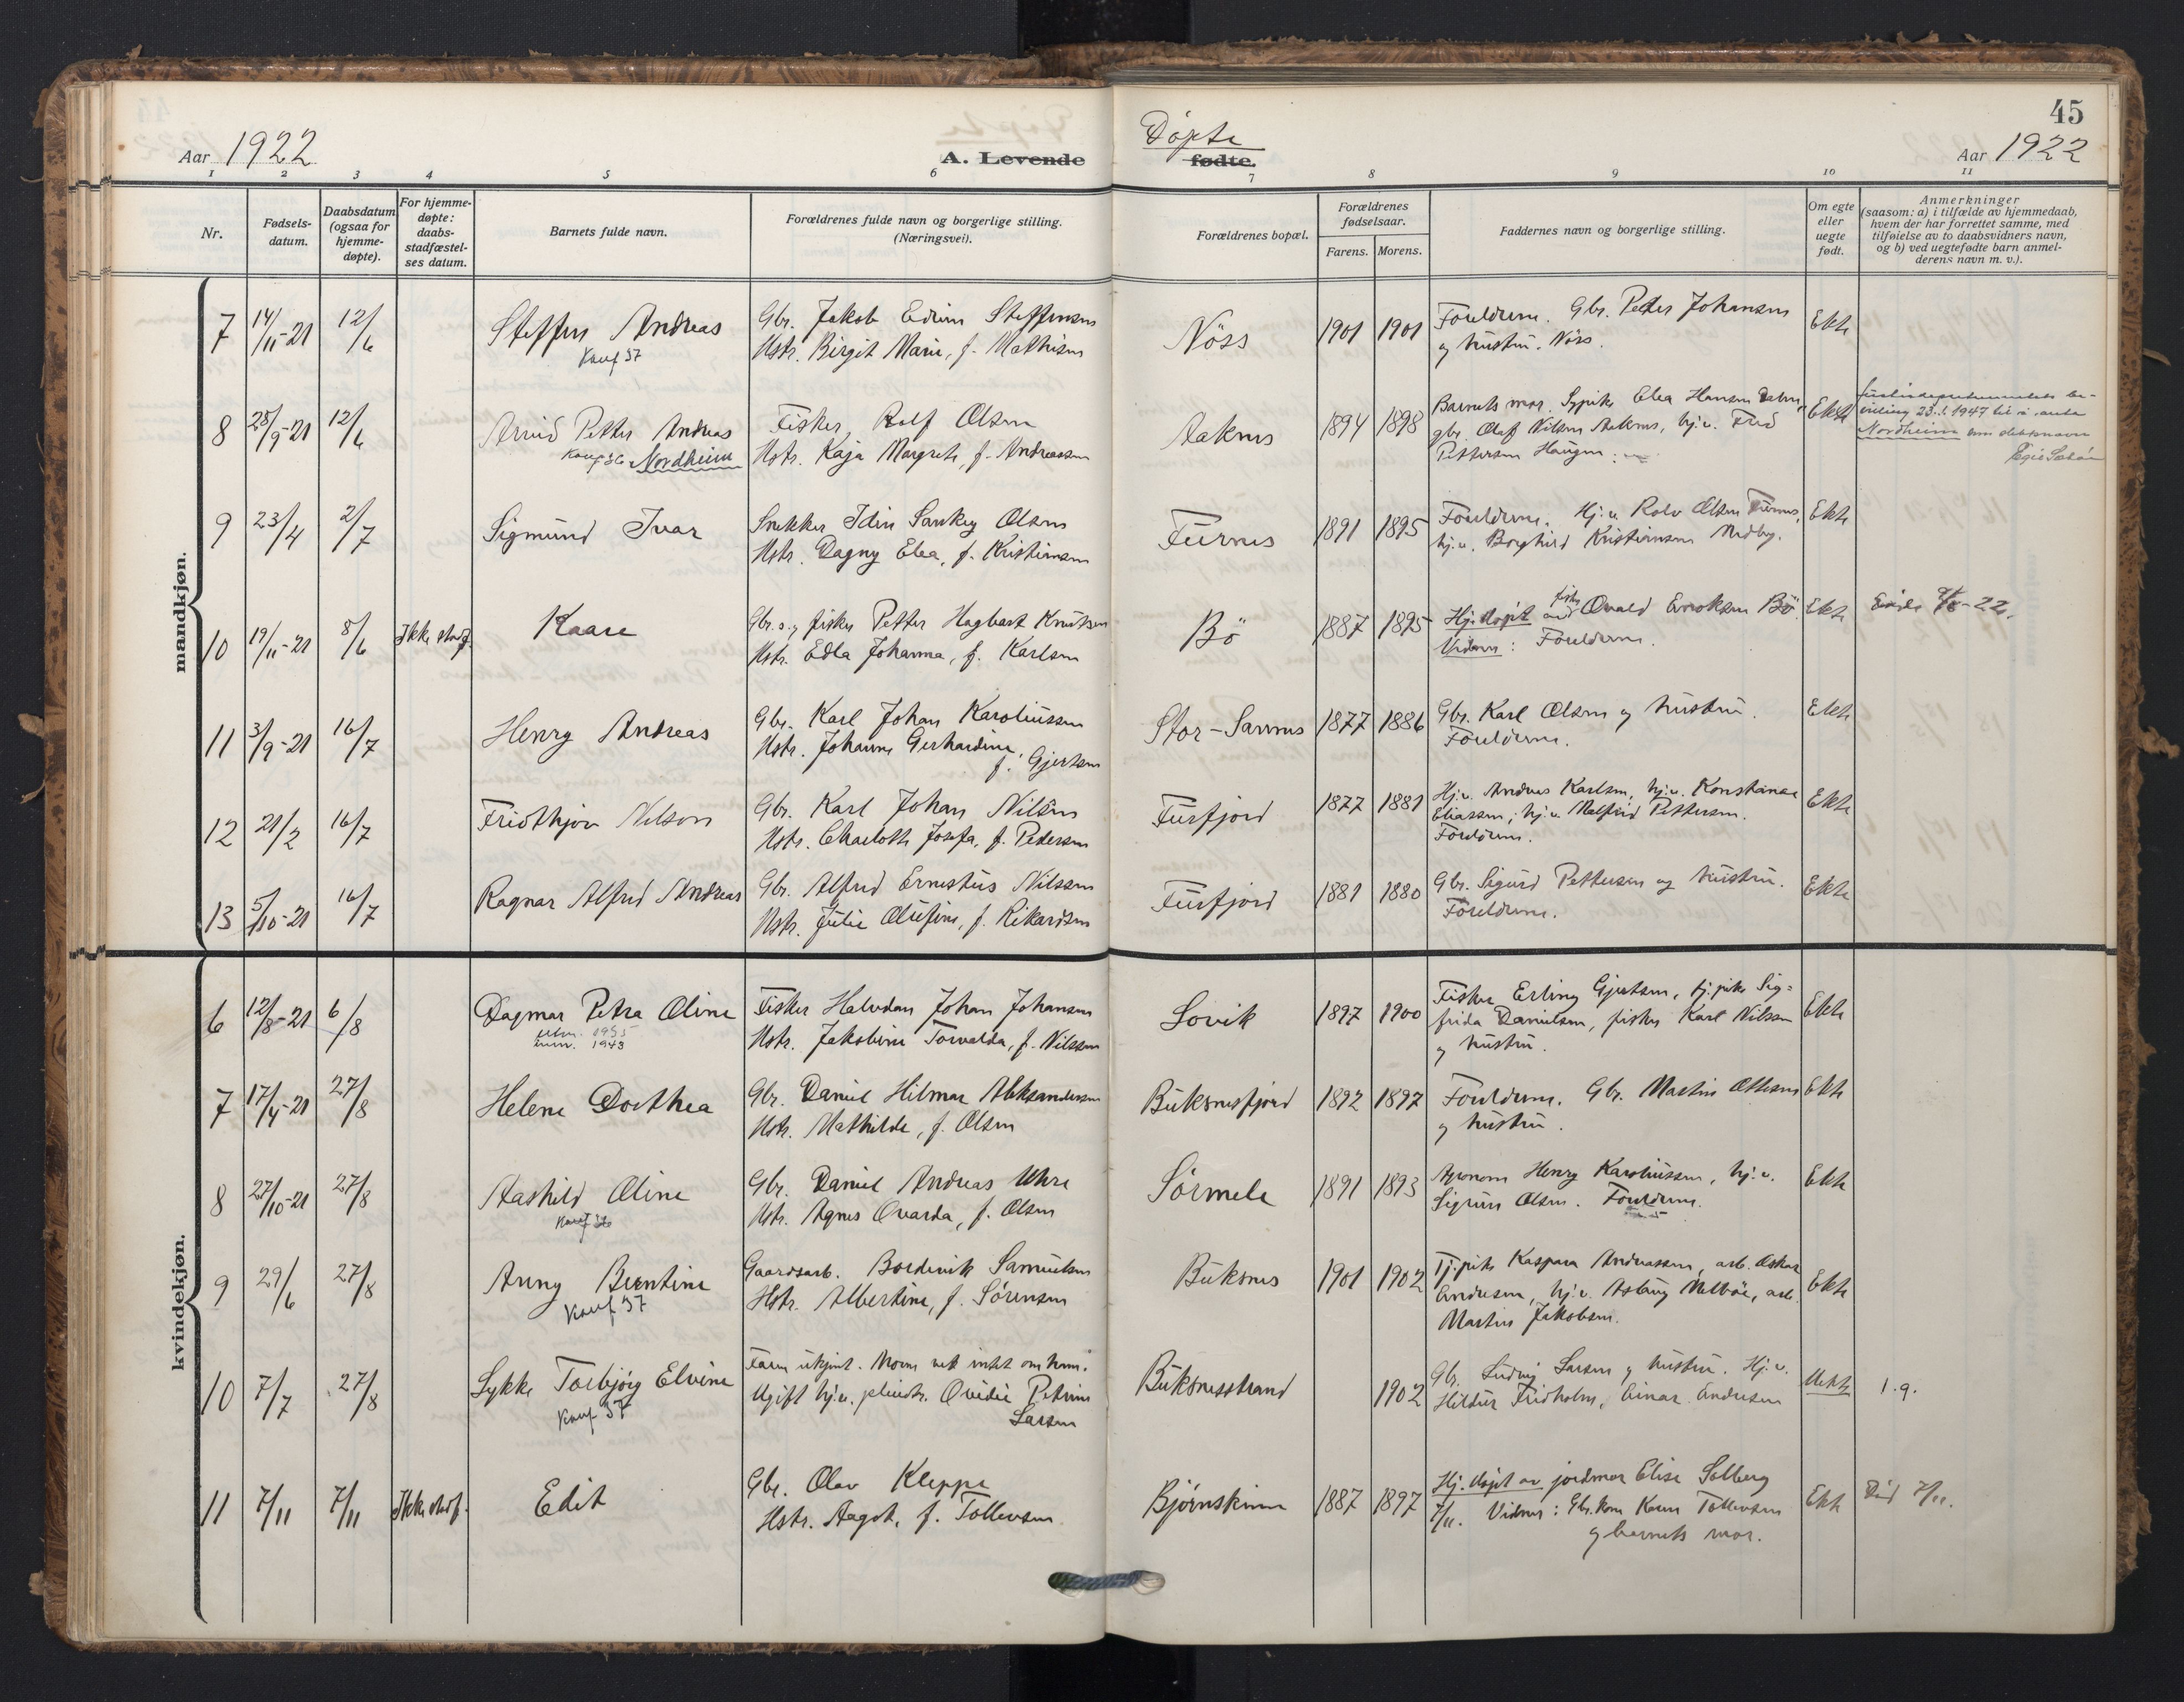 45
Aar 1922
A. Levende
Døpte
fødte.
Aar 1922
1 2 3 4 5 6 7 8 9 10 11
Nr.
Fødsels-
datum.
Daabsdatum
(ogsaa for
hjemme-
døpte).
For hjemme-
døpte:
daabs-
stadfæstel-
ses datum.
Barnets fulde navn.
Forældrenes fulde navn og borgerlige stilling.
(Næringsvei).
Forældrenes bopæl.
Forældrenes
fødselsaar.
Farens. Morens.
Faddernes navn og borgerlige stilling.
Om egte
eller
uegte
født.
Anmerkninger
(saasom: a) i tilfælde av hjemmedaab,
hvem der har forrettet samme, med
tilføielse av to daabsvidners navn,
og b) ved uegtefødte barn anmel-
derens navn m. v.).
mandkjøn.
7 14/11-21 12/6 Steffen Andreas
Konf 37
Gbr. Jakob Edvin Steffensen
Hstr. Birgit Marie, f. Mathisen
Nöss 1901 1901
Foreldrene. Gbr. Peder Johansen
og hustru. Nöss.
Ekte
8 28/9-21 12/6 Arvid Petter Andreas
Konf 36 Nordheim
Fisker Rolf Olsen
Hstr. Kaja Margrete, f. Andreassen
Aaknes 1894 1898
Barnets mor. Sypike Elea Hansen
gbr. Olaf Nilsen Aaknes, hj.v. Frid
Pettersen Haugen
Ekte
Justisdepartementets be-
villing 23.1.1947 til å anta
Nordheim som slektsnavn
9 23/4 2/7 Sigmund Ivar
Snekker Idin Sankey Olsen
Hstr. Dagny Elea, f. Kristiansen
Furnes 1891 1895
Foreldrene. Hj.v. Rolv Olsen Furnes,
hj.v. Borghild Kristiansen Medby.
Ekte
10 19/11-21 8/6 Ikke stadf. Kaare
Gbr. og fisker Petter Hagbart Knutsen
Hstr. Edla Johanna, f. Karlsen
Bö 1887 1895
Hj.döpt av fisker Ovald Eriksen Bö.
Vidner: Foreldrene.
Ekte
11 3/9-21 16/7 Henry Andreas
Gbr. Karl Johan Karoliussen
Hstr. Johanne Gerhardine,
f. Gjertsen
Stor-Sannes 1877 1886
Gbr. Karl Olsen og hustru.
Foreldrene.
Ekte
12 21/2 16/7 Fridthjov Nilson
Gbr. Karl Johan Nilsen
Hstr. Charlotte Josefa, f. Pedersen
Fusfjord 1877 1881
Hj.v. Andreas Karlsen, hj.v. Konstanse
Eliassen, hj.v. Malfrid Pettersen.
Foreldrene.
Ekte
13 5/10-21 16/7 Ragnar Alfred Andreas
Gbr. Alfred Ernestus Nilssen
Hstr. Julie Olufine, f. Rikardsen
Fusfjord 1881 1880
Gbr. Sigurd Pettersen og hustru.
Foreldrene.
Ekte
kvindekjøn.
6 12/8-21 6/8 Dagmar Petra Oline
utm. 1935
innm. 1943
Fisker Halvdan Johan Johansen
Hstr. Jakobine Torvalda, f. Nilssen
Lovik 1897 1900
Fisker Erling Gjertsen, tj.pike Sig-
frida Danielsen, fisker Karl Nilssen
og hustru.
Ekte
7 17/4-21 27/8 Helene Dorthea
Gbr. Daniel Hilmar Aleksandersen
Hstr. Mathilde, f. Olsen
Buksnesfjord 1892 1897
Foreldrene. Gbr. Martin Ottesen
og hustru.
Ekte
8 27/10-21 27/8 Aashild Oline
Konf 36
Gbr. Daniel Andreas Uhre
Hstr. Agnes Ovarda, f. Olsen
Sörmela 1891 1893
Agronom Henry Karoliussen, hj.v.
Sigrun Olsen. Foreldrene.
Ekte
9 29/6 27/8 Anny Berntine
Konf 37
Gaardsarb. Bordevik Samuelsen
Hstr. Albertine, f. Sörensen
Buksnes 1901 1902
Tj.pike Kaspara Andreassen, arb. Oskar
Andersen, hj.v. Aslaug Melböe, arb.
Martin Jakobsen.
Ekte
10 7/7 27/8 Lykke Torbjörg Elvine
Konf 37
Faren ukjent. Moren vet intet om ham.
Ugift hj.v. pleiedtr. Ovidie Petrine
Larsen
Buksnesstrand 1902
Gbr. Ludvig Larsen og hustru. Hj.v.
Hildur Fridholm, Einar Andersen
Uekte
1. g.
11 7/11 7/11 Ikke stadf. Edit
Gbr. Olav Kleppe
Hstr. Aagot, f. Tollevsen
Björnskinn 1887 1897
Hj.döpt av jordmor Elise Solberg
7/11. Vidner: Gbr.kone Karen Tollevsen
og barnets mor.
Ekte
Död 7/11.